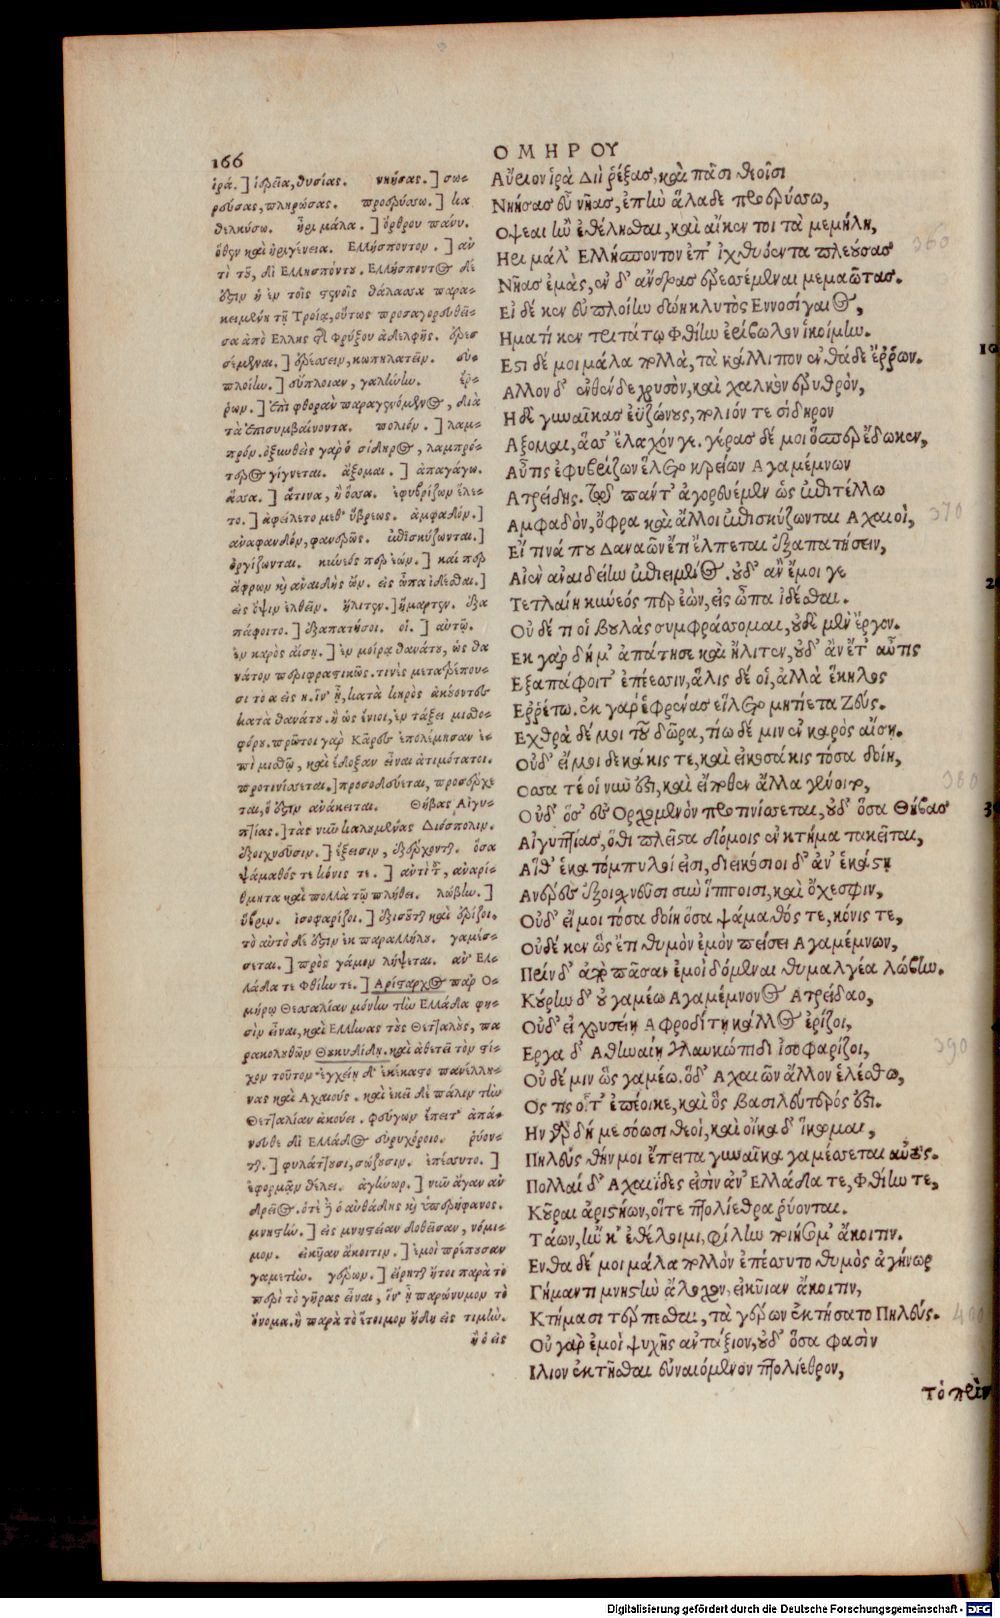 166
ΟΜΗΡΟΥ
ἱρά.] ἱερεῖα, θυσίας. νηήσας.] σω-
ρεύσας, πληρώσας. προερύσσω.] κα
θελκύσω. ἦρι μάλα.] ὄρθρου πάνυ.
ὅθεν καὶ ἠριγένεια. Ἑλλήσποντον.] ἀν
τὶ τοῦ, δι Ἑλλησπόντου. Ἑλλήσποντος δέ
ἐστιν ἡ ἐν τοῖς στενοῖς θάλασσα παρα-
κειμένη τῇ Τροίᾳ, οὕτως προσαγορευθεῖ-
σα ἀπὸ Ἕλλης τῆς Φρύξου ἀδελφῆς. ἐρεσ
σέμεναι.] ἐρέσσειν, κωπηλατεῖν. εὐ-
πλοίην.] εὔπλοιαν, γαλήνην. ἔρ-
ρων.] ἐπὶ φθορὰν παραγενόμενος, διὰ
τὰ ἐπισυμβαίνοντα. πολιόν.] λαμ-
πρόν. ὀξυνθεὶς γαρ ὁ σίδηρος, λαμπρό-
τερος γίγνεται. ἄξομαι.] ἀπαγάγω.
ἅσσα.] ἅτινα, ἢ ὅσα. ἐφυβρίζων ἕλε-
το.] ἀφείλετο μεθ' ὕβρεως. ἀμφαδόν.]
ἀναφανδόν, φανερῶς. ἐπισκύζωνται.]
ὀργίζωνται. κύνεός περ ἐών.] καί περ
ἄφρων κὶ ἀναιδὴς ὤν. εἰς ὦπα ἰδέσθαι.]
εἰς ὄψιν ἐλθεῖν. ἤλιτεν.] ἥμαρτεν. ἐξα
πάφοιτο.] ἐξαπατήσοι. οἱ.] αὐτῷ.
ἐν καρὸς αἴσῃ.] ἐν μοίρᾳ θανάτου, ὡς θα
νάτου περιφραστικῶς. τινὲς μετατρέπου-
σι τὸ α εἰς η. ἵν' ᾖ, κατὰ κηρὸς ἀκούοντες
κατὰ θανάτου. ἢ ὡς ἔνιοι, ἐν τάξει μισθο-
φόρου. πρῶτοι γαρ Κᾶρες ἐπολέμησαν ἐ-
πὶ μισθῷ, καὶ ἔδοξαν εἶναι ἀτιμότατοι.
προτινίσεται.] προσοδεύεται, προσέρχε
ται, ὅ ἐστιν ἀνάκειται. Θήβας Αἰγυ-
πτίας.] τὰς νῦν καλουμένας Διόσπολιν.
ἐξοιχνεῦσιν.] ἔξεισιν, ἐξέρχονται. ὅσα
ψάμαθός τε κόνις τε.] ἀντὶ τοῦ, ἀναρί-
θμητα καὶ πολλὰ τῷ πλήθει. λώβην.]
ὕβριν. ἰσοφαρίζοι.] ἐξισοῦται καὶ ἐρίζοι.
τὸ αὐτὸ δέ ἐστιν ἐκ παραλλήλου. γαμέσ-
σεται.] πρὸς γάμον λήψεται. ἀν' Ἑλ-
λάδα τε Φθίην τε.] Ἀρίσταρχος παρ' Ὁ-
μήρῳ Θεσσαλίαν μόνην τὴν Ἑλλάδα φη-
σὶν εἶναι, καὶ Ἕλληνας τοὺς Θετταλοὺς, πα
ρακολουθῶν Θουκυδίδῃ. καὶ ἀθετεῖ τὸν στί-
χον τοῦτον ἐγχείῃ δ' ἐκέκαστο πανέλλη-
νας καὶ Ἀχαιούς. καὶ ἐκεῖ δὲ πάλιν τὴν
Θετταλίαν ἀκούει. φεύγων ἔπειτ' ἀπά-
νευθε δι Ἑλλάδος εὐρυχόροιο. ῥύον-
ται.] φυλάττουσι, σώζουσιν. ἐπέσσυτο.]
ἐφορμᾷν θέλει. ἀγήνωρ.] νῦν ἄγαν ἀν
δρεῖος. ὁτὲ δὲ ὁ αὐθάδης κὶ ὑπερήφανος.
μνηστὴν.] εἰς μνηστείαν δοθεῖσαν, νόμι-
μον. εἰκυῖαν ἄκοιτιν.] ἐμοὶ πρέπουσαν
γαμετὴν. γέρων.] εἴρηται ἤτοι παρὰ τὸ
περὶ τὸ γῆρας εἶναι, ἵν' ᾖ παρώνυμον τὸ
ὄνομα. ἢ παρὰ τὸ ἕτοιμον ἤδη εἰς τιμὴν.
ἢ ὁ εἰς
Αὔριον ἱρὰ Διὶ ῥέξας, καὶ πᾶσι θεοῖσι
Νηήσας εὖ νῆας, ἐπὴν ἅλαδε προερύσσω,
Ὄψεαι ἢν ἐθέλησθαι, καὶ αἴκεν τοι τὰ μεμήλῃ,
Ἦρι μάλ' Ἑλλήσποντον ἐπ' ἰχθυόεντα πλεύσας
Νῆας ἐμὰς, ἐν δ' ἄνδρας ἐρεσσέμεναι μεμαῶτας.
Εἰ δέ κεν εὐπλοίην δώῃ κλυτὸς Ἐννοσίγαιος,
Ἤματί κεν τριτάτῳ Φθίην ἐρίβωλον ἱκοίμην.
Ἔστι δέ μοι μάλα πολλὰ, τὰ κάλλιπον ἐνθάδε ἔρρων.
Ἄλλον δ' ἐνθένδε χρυσὸν, καὶ χαλκὸν ἐρυθρὸν,
Ἠδὲ γυναῖκας ἐϋζώνους, πολιόν τε σίδηρον
Ἄξομαι, ἅσσ' ἔλαχόν γε. γέρας δέ μοι ὅσπερ ἔδωκεν,
Αὖτις ἐφυβρίζων ἕλετο κρείων Ἀγαμέμνων
Ἀτρείδης. τῷ πάντ' ἀγορευέμεν ὡς ἐπιτέλλω
Ἀμφαδὸν, ὄφρα καὶ ἄλλοι ἐπισκύζωνται Ἀχαιοὶ,
Εἴ τινά που Δαναῶν ἔτι ἔλπεται ἐξαπατήσειν,
Αἰὲν ἀναιδείην ἐπιειμένος. οὐδ' ἂν ἔμοι γε
Τετλαίη κύνεός περ ἐὼν, εἰς ὦπα ἰδέσθαι.
Οὐ δέ τι οἱ βουλὰς συμφράσσομαι, οὐδὲ μὲν ἔργον.
Ἐκ γαρ δή μ' ἀπάτησε καὶ ἤλιτεν, οὐδ' ἂν ἔτ' αὖτις
Ἐξαπάφοιτ' ἐπέεσσιν, ἅλις δέ οἱ, ἀλλὰ ἕκηλος
Ἐρρέτω. ἐκ γαρ ἑ φρένας εἵλετο μητίετα Ζεύς.
Ἐχθρὰ δέ μοι τοῦ δῶρα, τίω δέ μιν ἐν καρὸς αἴσῃ.
Οὐδ' εἴ μοι δεκάκις τε, καὶ εἰκοσάκις τόσα δοίη,
Ὅσσα τέ οἱ νῦν ἐστὶ, καὶ εἴ ποθεν ἄλλα γένοιτο,
Οὐδ' ὅσ' ἐς Ὀρχομενὸν προτινίσσεται, οὐδ' ὅσα Θήβας
Αἰγυπτίας, ὅθι πλεῖστα δόμοις ἐν κτήματα κεῖται,
Αἵθ' ἑκατόμπυλοί εἰσι, διηκόσιοι δ' ἀν' ἑκάστη
Ἀνέρες ἐξοιχνεῦσι σὺν ἵπποισι, καὶ ὄχεσφιν,
Οὐδ' εἴ μοι τόσα δοίη ὅσα ψάμαθός τε, κόνις τε,
Οὐδέ κεν ὣς ἔτι θυμὸν ἐμὸν πείσει Ἀγαμέμνων,
Πρίν δ' ἀπὸ πᾶσαν ἐμοὶ δόμεναι θυμαλγέα λώβην.
Κούρην δ' οὐ γαμέω Ἀγαμέμνονος Ἀτρείδαο,
Οὐδ' εἰ χρυσείῃ Ἀφροδίτῃ κάλλος ἐρίζοι,
Ἔργα δ' Ἀθηναίῃ γλαυκώπιδι ἰσοφαρίζοι,
Οὐ δέ μιν ὣς γαμέω. ὅδ' Ἀχαιῶν ἄλλον ἑλέσθω,
Ὅς τις οἷ τ' ἐπέοικε, καὶ ὃς βασιλεύτερός ἐστι.
Ἢν γὰρ δή με σόωσι θεοὶ, καὶ οἴκαδ' ἵκωμαι,
Πηλεύς θήν μοι ἔπειτα γυναῖκα γαμέσσεται αὐτός.
Πολλαί δ' Ἀχαιΐδες εἰσὶν ἀν' Ἑλλάδα τε, Φθίην τε,
Κοῦραι ἀριστήων, οἵτε πτολίεθρα ῥύονται.
Τάων, ἥν κ' ἐθέλοιμι, φίλην ποιήσομ' ἄκοιτιν.
Ἔνθα δέ μοι μάλα πολλὸν ἐπέσσυτο θυμὸς ἀγήνωρ
Γήμαντι μνηστὴν ἄλοχον, εἰκυῖαν ἄκοιτιν,
Κτήμασι τέρπεσθαι, τὰ γέρων ἐκτήσατο Πηλεύς.
Οὐ γαρ ἐμοὶ ψυχῆς ἀντάξιον, οὐδ' ὅσα φασὶν
Ἴλιον ἐκτῆσθαι εὐναιόμενον πτολίεθρον,
τὸ πρὶν
360
370
380
390
400
Digitalisierung gefördert durch die Deutsche Forschungsgemeinschaft - DFG